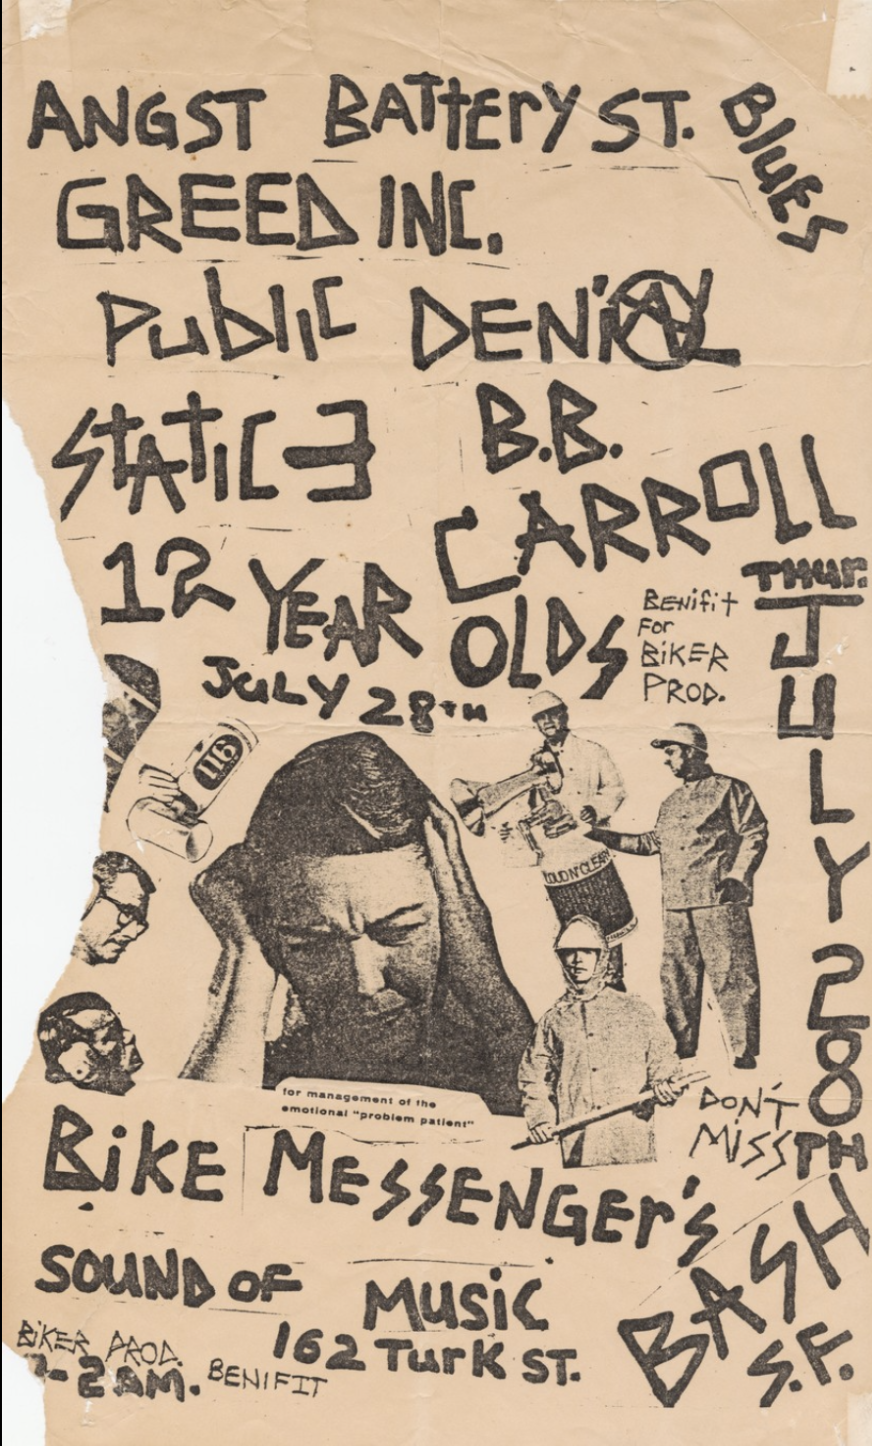 ANGST BATtErY ST. BluES
GREED INC.
Public DENiAL
StAtIC 3 B.B.
CARROLL
12 YEAR OLDS
BENifit
For
BiKER
PROD.
THUr.
JULY 28TH
JULY 28TH
116
LOUD N' CLEAR
for management of the
emotional "problem patient"
DON'T
MISS
BiKE MESSENGEr's
BASH
SOUND OF MUSiC
162 TurK ST. S.F.
BiKER PROD.
BENIFIT
- 2 AM.